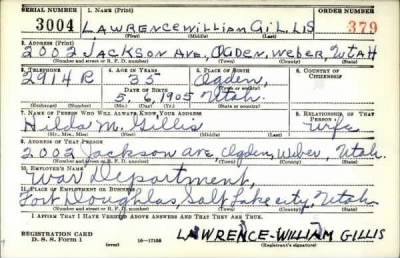 SERIAL NUMBER 1. NAME (Print) ORDER NUMBER
3004 LAWRENCE WILLIAM GILLIS 379
(First) (Middle) (Last)
2. ADDRESS (Print)
2002 JACKSON AVE, OGDEN, WEBER, UTAH
(Number and street or R. F. D. number) (Town) (County) (State)
3. TELEPHONE 4. AGE IN YEARS 5. PLACE OF BIRTH 6. COUNTRY OF CITIZENSHIP
2914 R 35 Ogden,
DATE OF BIRTH (Town or county)
5, 6, 1905 Utah.
(Exchange) (Number) (Mo.) (Day) (Yr.) (State or country)
7. NAME OF PERSON WHO WILL ALWAYS KNOW YOUR ADDRESS 8. RELATIONSHIP OF THAT PERSON
M. Gillis, Wife
(Mr., Mrs., Miss) (First) (Middle) (Last)
9. ADDRESS OF THAT PERSON
2002 Jackson ave Ogden, Weber, Utah.
(Number and street or R. F. D. number) (Town) (County) (State)
10. EMPLOYER'S NAME
War Department,
11. PLACE OF EMPLOYMENT OR BUSINESS
Fort Doughlas, Salt Lake city, Utah
(Number and street or R. F. D. number) (Town) (County) (State)
I AFFIRM THAT I HAVE VERIFIED ABOVE ANSWERS AND THAT THEY ARE TRUE.
REGISTRATION CARD
D. S. S. Form 1 16—17105 LAWRENCE-WILLIAM GILLIS
(Registrant's signature)